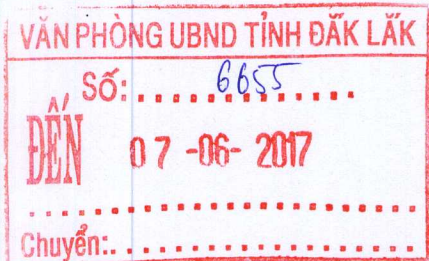 VĂN PHÒNG UBND TỈNH ĐĂK LĂK
Số: 6655
ĐẾN 07 -06- 2017
Chuyển: